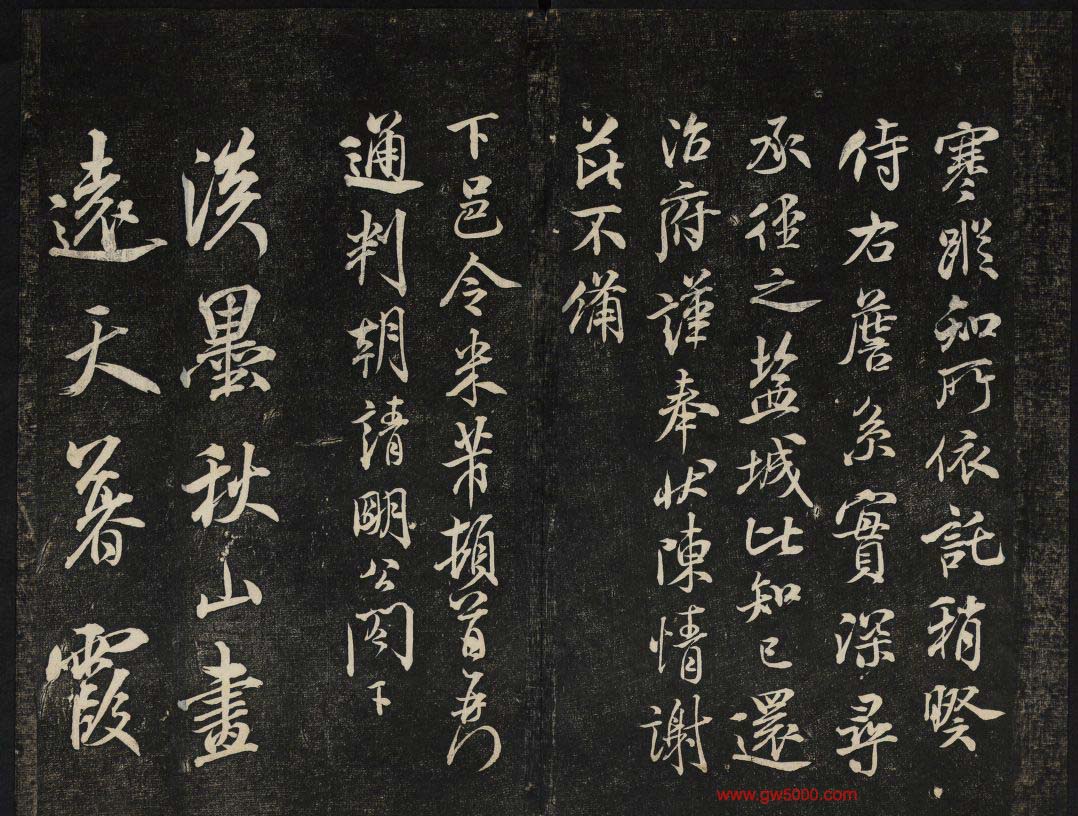 寒蹤知所依託稍暌
侍右詹系實深尋
承往之盐城比知已還
治府謹奉状陳情謝
芘不備
下邑令米芾頓首再
通判朝請明公閤下
淡墨秋山畫
遠天暮霞
www.gw5000.com